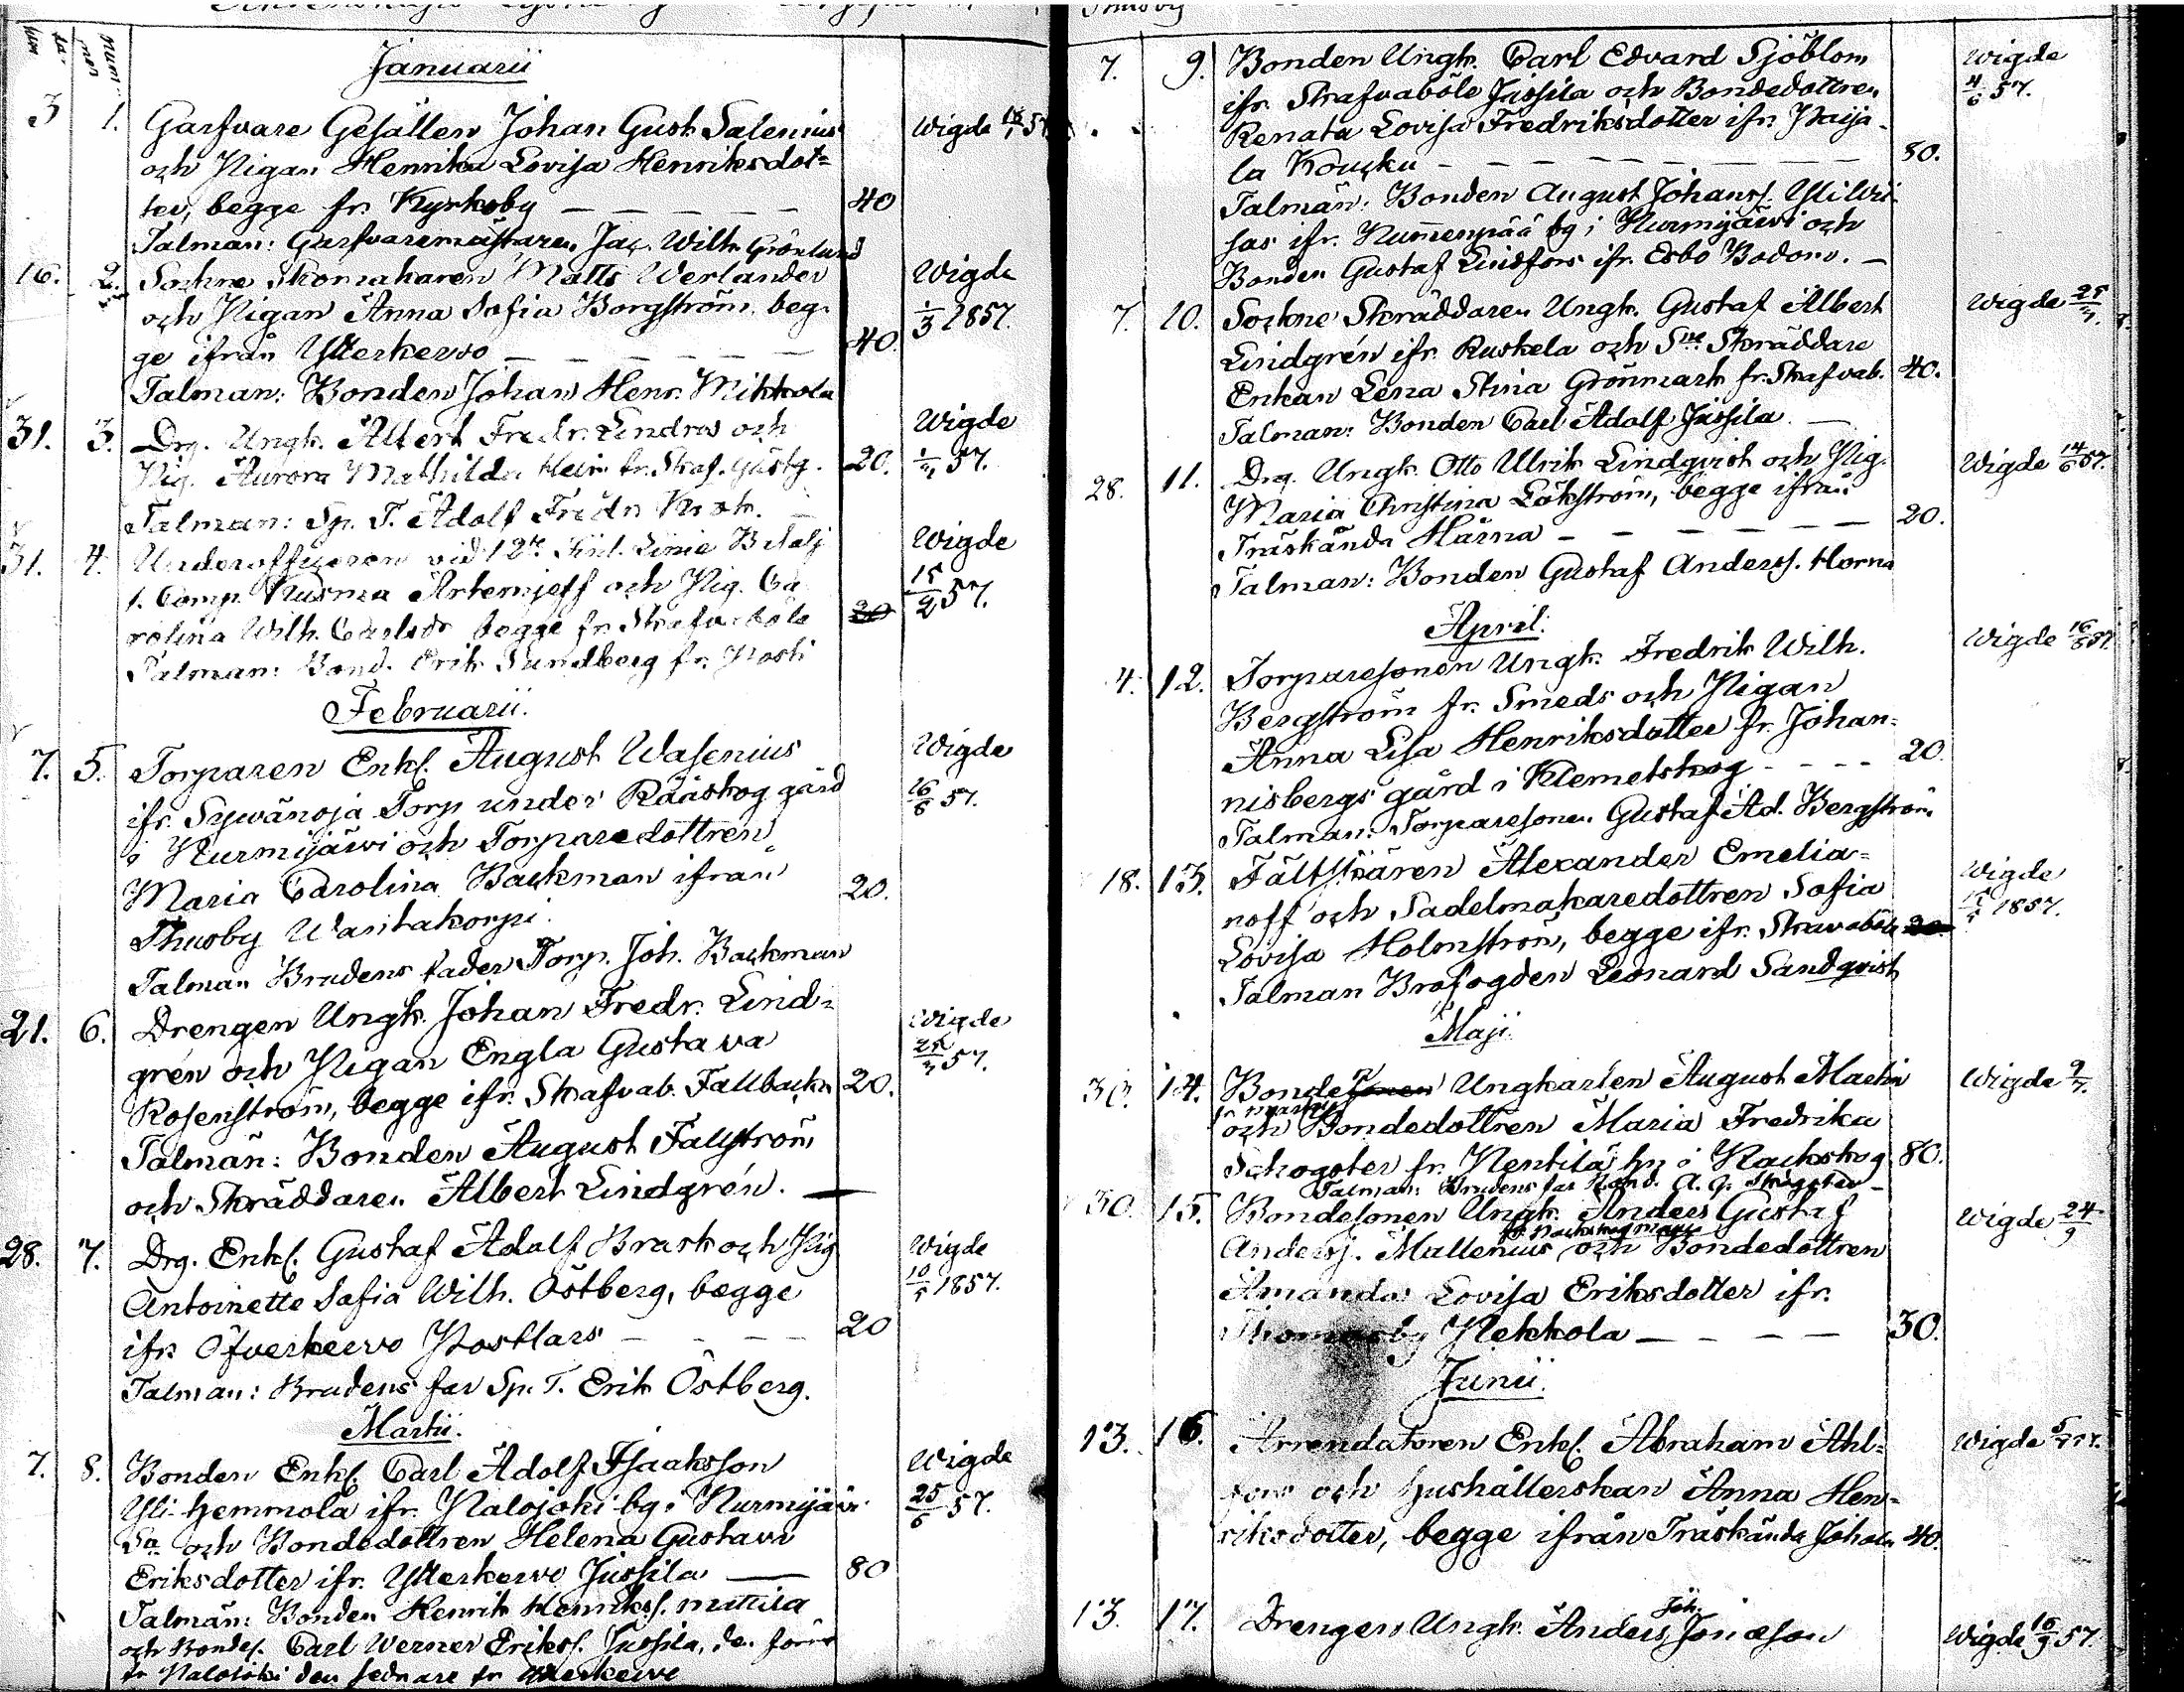 Januarii
3 1. Garfvare Gesällen Johan Gust. Salenius Wigde
och Pigan Henrika Lovisa Henriksdot=
ter, begge fr. Kyrkoby — — — — — 40
Talman: Garfvaremästaren Jac. Wilh. Grönlund
16. 2. Sockne Skomakaren Matts Werlander Wigde
och Pigan Anna Sofia Borgström beg- 1/3 1857.
ge ifrån Ytterkervo — — — — — 40.
Talman: Bonden Johan Henr. Mikkola
31. 3. Drg. Ungk. Albert Fredr. Lindros och Wigde
Pig. Aurora Mathilda fr. Skaf. Gästg. 20. 57.
Talman: Sp. T. Adolf Fredr.
31. 4. Underofficeren vid 12te Finl. Linie Batalj Wigde
1. Comp. Kusma Artemjeff och Pig. Ca 15/2 57.
rolina Wilh. Carlsdr begge fr. Skafvaböle 20
Talman: Bond. Erik Sundberg fr.
Februarii.
7. 5. Torparen Enkl. August Wasenius Wigde
ifr. Syvänoja Torp under Rääskog gård 16/6 57.
i Nurmijärvi och Torparedottren
Maria Carolina Backman ifrån 20.
Thusby Wantakorpi.
Talman Brudens fader Torp. Joh. Backman
21. 6. Drengen Ungk. Johan Fredr. Lind= Wigde
grén och Pigan Engla Gustava 57.
Rosenström, begge ifr. Skafvab. Fallbacka 20.
Talmän: Bonden August Fallström
och Skräddaren Albert Lindgrén. —
28. 7. Drg. Enkl. Gustaf Adolf Brask och Pig Wigde
Antoinette Sofia Wilh. Östberg, begge 10/5 1857.
ifr. Öfverkervo Postlars — — — — 20
Talman: Brudens far Sp. T. Erik Östberg.
Martii.
7. 8. Bonden Enkl. Carl Adolf Isaaksson Wigde
Yli-Hemmola ifr. Palojoki by i Nurmijärvi 25/6 57.
Sn och Bondedottren Helena Gustava
Eriksdotter ifr. Ytterkervo Jussila — 80
Talmän: Bonden Henrik Henrikss. Mattila
och Bondes. Carl Werner Erikss. Jussila, den förre
fr Palojoki den sednare fr Ytterkervo
7. 9. Bonden Ungk. Carl Edvard Sjöblom Wigde
ifr. Skafvaböle Jussila och Bondedottren 4/6 57.
Renata Lovisa Fredriksdotter ifr. Paija-
la Koucku — — — — — — — 80.
Talmän: Bonden August Johanss.
ifr. Nummenpää by i Nurmijärvi och
Bonden Gustaf Lindfors ifr. Esbo Bodom. —
7. 10. Sockne Skräddaren Ungk. Gustaf Albert Wigde
Lindgrén ifr. Ruskela och Sne Skräddare
Enkan Lena Stina Grönmark fr. Skafvab. 40.
Talman: Bonden Carl Adolf Jussila —
28. 11. Drg. Ungk. Otto Ulrik Lindqvist och Pig. Wigde 14/6 57.
Maria Christina Lökström, begge ifrån
Träskända Härna — — — — — 20.
Talman: Bonden Gustaf Anderss. Horna
April.
4. 12. Torparesonen Ungk. Fredrik Wilh. Wigde 16/6 57.
Bergström fr. Smeds och Pigan
Anna Lisa Henriksdotter fr. Johan=
nisbergs gård i Klemetskog - - - - 20
Talman: Torparesonen Gustaf Ad. Bergström
18. 13. Fältskären Alexander Emelia= Wigde
noff och Sadelmakaredottren Sofia 1857.
Lovisa Holmström, begge ifr. Skavaböle 20
Talman Brofogden Leonard Sandqvist
Maji.
30. 14. Bondesonen Ungkarlen August Martin Wigde 9/7.
och Bondedottren Maria Fredrika
Skogster fr. Pentilä hn i Nackskog 80.
Talman: Brudens far Bond. A. G. Skogster —
30. 15. Bondesonen Ungk. Anders Gustaf Wigde 24/9
Anderss. Mallenius och Bondedottren
Amanda Lovisa Eriksdotter ifr.
Thomasby Pekkola — — — — 30.
Junii.
13. 16. Arrendatoren Enkl. Abraham Ahl= Wigde
fors och Hushållerskan Anna Hen=
riksdotter, begge ifrån Träskända Johan 40.
13. 17. Drengen Ungk. Anders Joh. Jonæson Wigde 16/9 57.